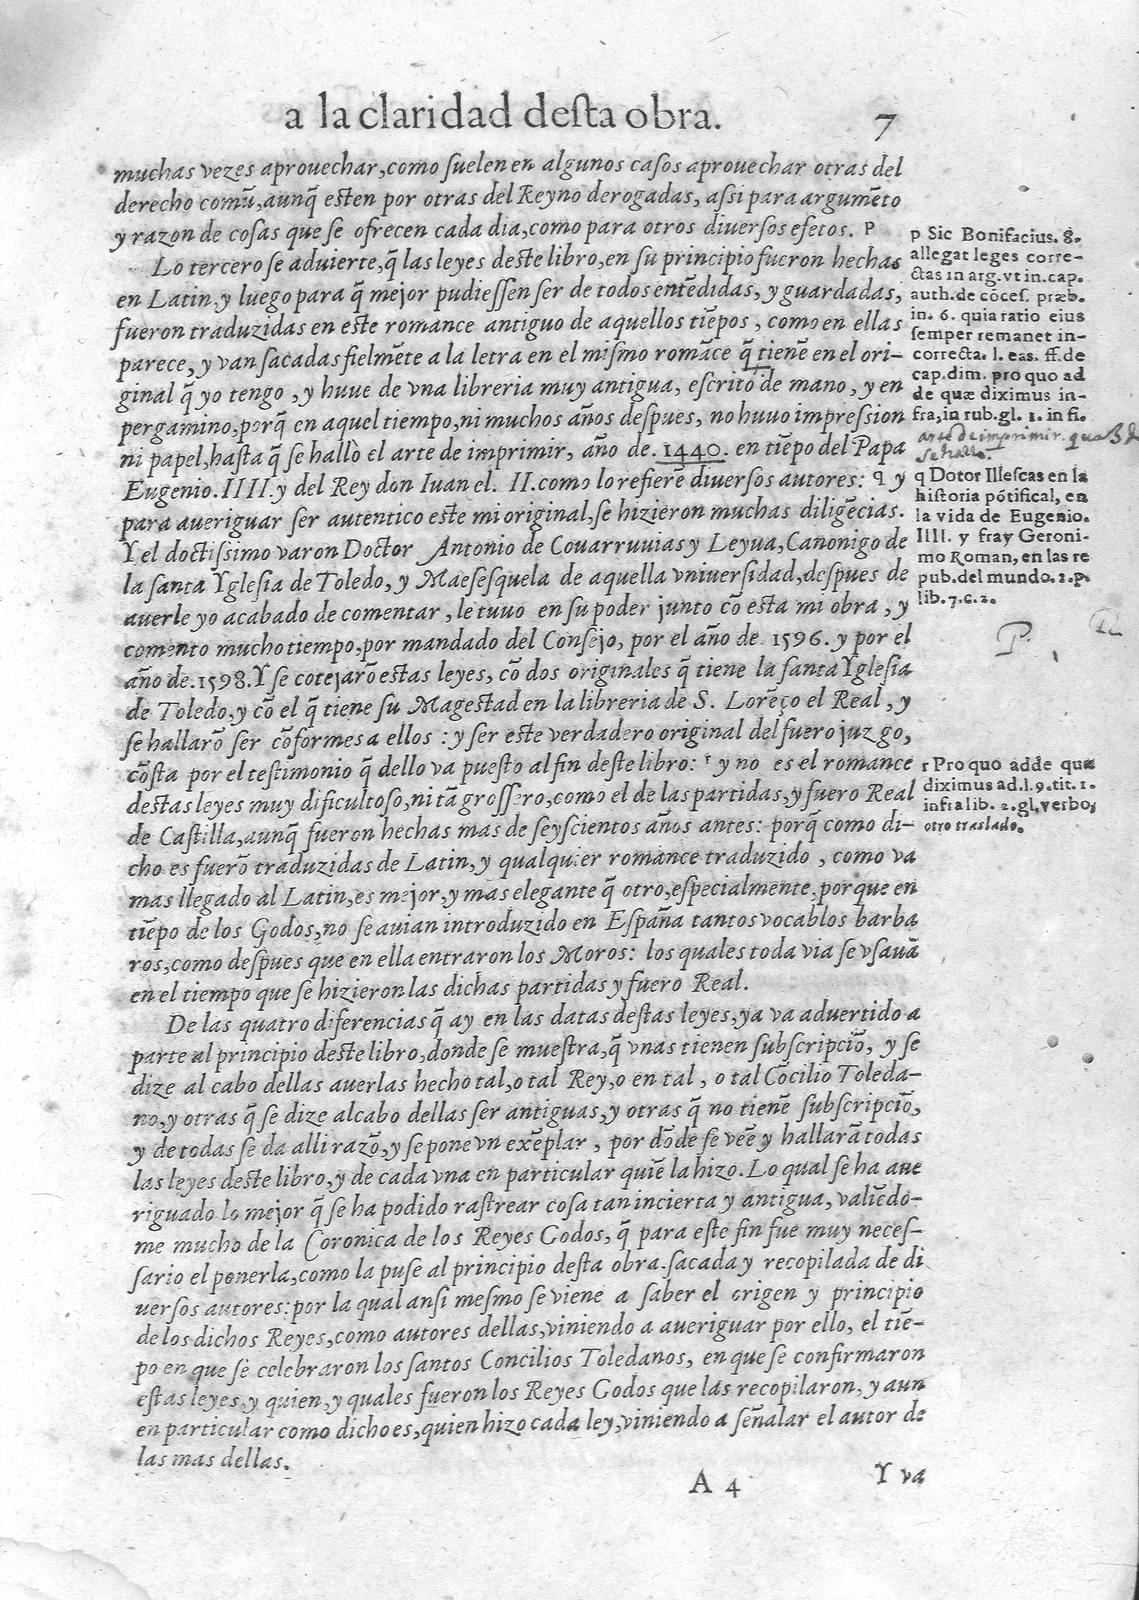 a la claridad desta obra. 7
muchas vezes aprouechar, como suelen en algunos casos aprouechar otras del
derecho comũ, aunq̃ esten por otras del Reyno derogadas, assi para argumẽto
y razon de cosas que se ofrecen cada dia, como para otros diuersos efetos. p
Lo tercero se aduierte, q̃ las leyes deste libro, en su principio fueron hechas
en Latin, y luego para q̃ mejor pudiessen ser de todos entẽdidas, y guardadas,
fueron traduzidas en este romance antiguo de aquellos tiẽpos, como en ellas
parece, y van sacadas fielmẽte a la letra en el mismo romãce q̃ tienẽ en el ori-
ginal q̃ yo tengo, y huue de vna libreria muy antigua, escrito de mano, y en
pergamino, porq̃ en aquel tiempo, ni muchos años despues, no huuo impression
ni papel, hasta q̃ se hallò el arte de imprimir, año de. 1440. en tiẽpo del Papa
Eugenio. IIII. y del Rey don Iuan el. II. como lo refierẽ diuersos autores: q y
para aueriguar ser autentico este mi original, se hizieron muchas diligẽcias.
Y el doctissimo varon Doctor Antonio de Couarruuias y Leyua, Canonigo de
la santa Yglesia de Toledo, y Maesesquela de aquella vniuersidad, despues de
auerle yo acabado de comentar, le tuuo en su poder junto cõ esta mi obra, y
comento mucho tiempo, por mandado del Consejo, por el año de 1596. y por el
año de. 1598. Y se cotejarõ estas leyes, cõ dos originales q̃ tiene la santa Yglesia
de Toledo, y cõ el q̃ tiene su Magestad en la libreria de S. Lorẽço el Real, y
se hallarõ ser cõformes a ellos: y ser este verdadero original del fuero juzgo,
cõsta por el testimonio q̃ dello va puesto al fin deste libro: r y no es el romance
destas leyes muy dificultoso, ni tã grossero, como el de las partidas, y fuero Real
de Castilla, aunq̃ fueron hechas mas de seyscientos años antes: porq̃ como di-
cho es fuerõ traduzidas de Latin, y qualquier romance traduzido, como va
mas llegado al Latin, es mejor, y mas elegante q̃ otro, especialmente, porque en
tiẽpo de los Godos, no se auian introduzido en España tantos vocablos barba
ros, como despues que en ella entraron los Moros: los quales toda via se vsauã
en el tiempo que se hizieron las dichas partidas y fuero Real.
De las quatro diferencias q̃ ay en las datas destas leyes, ya va aduertido a
parte al principio deste libro, donde se muestra, q̃ vnas tienen subscripciõ, y se
dize al cabo dellas auerlas hecho tal, o tal Rey, o en tal, o tal Cõcilio Toleda-
no, y otras q̃ se dize al cabo dellas ser antiguas, y otras q̃ no tienẽ subscripciõ,
y de todas se da alli razõ, y se pone vn exẽplar, por dõde se veẽ y hallarã todas
las leyes deste libro, y de cada vna en particular quiẽ la hizo. Lo qual se ha aue
riguado lo mejor q̃ se ha podido rastrear cosa tan incierta y antigua, valiẽdo-
me mucho de la Coronica de los Reyes Godos, q̃ para este fin fue muy neces-
sario el ponerla, como la puse al principio desta obra. sacada y recopilada de di
uersos autores: por la qual ansi mesmo se viene a saber el origen y principio
de los dichos Reyes, como autores dellas, viniendo a aueriguar por ello, el tiẽ-
po en que se celebraron los santos Concilios Toledanos, en que se confirmaron
estas leyes, y quien, y quales fueron los Reyes Godos que las recopilaron, y aun
en particular como dicho es, quien hizo cada ley, viniendo a señalar el autor de
las mas dellas.
A 4 Y va
p Sic Bonifacius. 8.
allegat leges corre-
ctas in arg. vt in. cap.
auth. de cõces. præb.
in. 6. quia ratio eius
semper remanet in-
correcta. l. eas. ff. de
cap. dim. pro quo ad
de quæ diximus in-
fra, in rub. gl. 1. in fi.
arte de imprimir.
se hallo.
q Dotor Illescas en la
historia põtifical, en
la vida de Eugenio.
IIII. y fray Geroni-
mo Roman, en las re
pub. del mundo. 2. p.
lib. 7. c. 2.
P.
12
r Pro quo adde quæ
diximus ad. l. 9. tit. 1.
infra lib. 2. gl. verbo,
otro traslado.